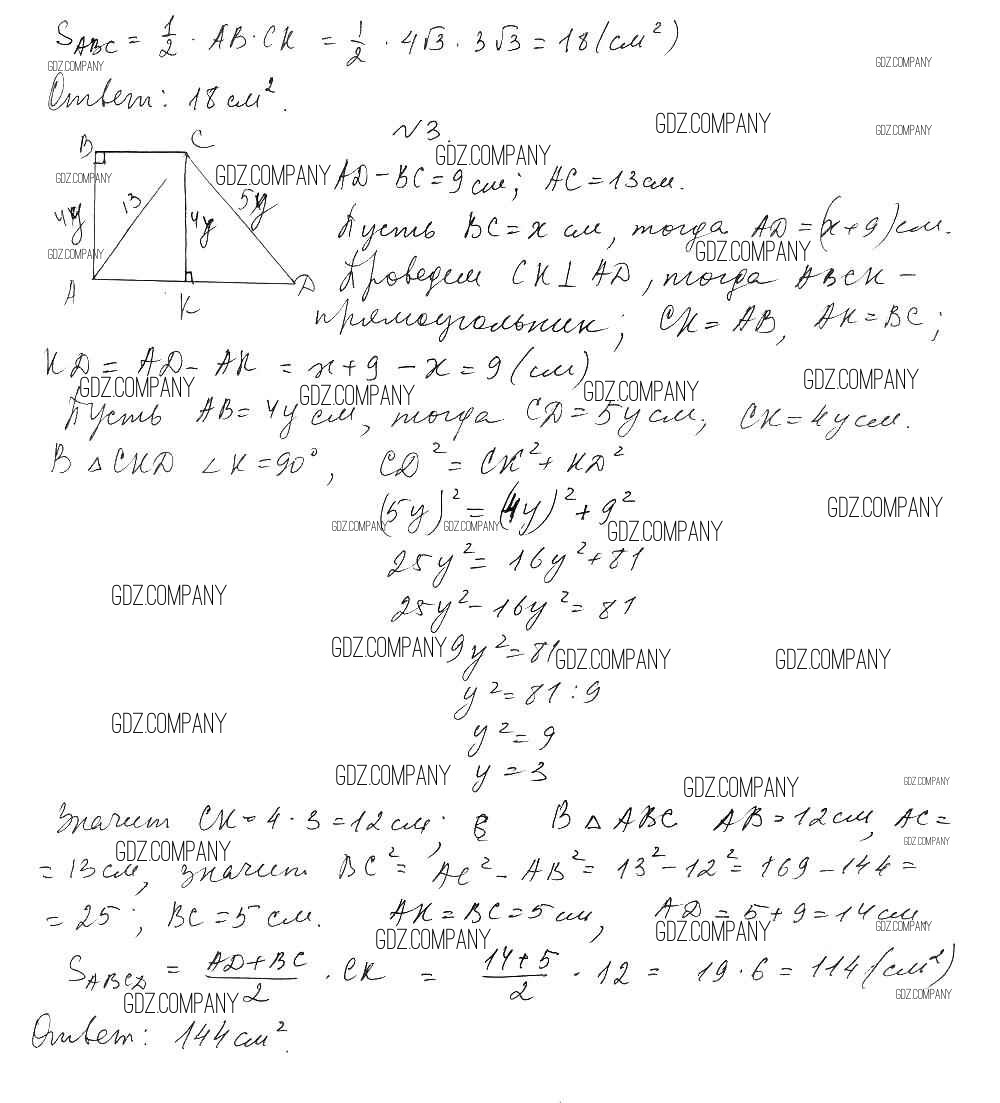 S_ABC = 1/2 · AB · CK = 1/2 · 4√3 · 3√3 = 18 (см²)
GDZ.COMPANY GDZ.COMPANY
Ответ: 18 см².
GDZ.COMPANY GDZ.COMPANY
N3.
B C
GDZ.COMPANY
GDZ.COMPANY GDZ.COMPANY AD - BC = 9 см; AC = 13 см.
4y 13 4y 5y
Пусть BC = x см, тогда AD = (x+9) см.
GDZ.COMPANY GDZ.COMPANY
Проведем CK ⊥ AD, тогда ABCK -
A K D
прямоугольник; CK = AB, AK = BC;
KD = AD - AK = x + 9 - x = 9 (см)
GDZ.COMPANY GDZ.COMPANY GDZ.COMPANY GDZ.COMPANY
Пусть AB = 4y см, тогда CD = 5y см, CK = 4y см.
В △CKD ∠K = 90°, CD² = CK² + KD²
(5y)² = (4y)² + 9²
GDZ.COMPANY
GDZ.COMPANY GDZ.COMPANY GDZ.COMPANY
25y² = 16y² + 81
GDZ.COMPANY
25y² - 16y² = 81
GDZ.COMPANY 9y² = 81 GDZ.COMPANY GDZ.COMPANY
y² = 81 : 9
GDZ.COMPANY
y² = 9
GDZ.COMPANY y = 3
GDZ.COMPANY GDZ.COMPANY
Значит CK = 4 · 3 = 12 см; В △ABC AB = 12 см, AC =
GDZ.COMPANY GDZ.COMPANY
= 13 см, значит BC² = AC² - AB² = 13² - 12² = 169 - 144 =
= 25; BC = 5 см. AK = BC = 5 см, AD = 5 + 9 = 14 см
GDZ.COMPANY GDZ.COMPANY GDZ.COMPANY
S_ABCD = (AD+BC)/2 · CK = (14+5)/2 · 12 = 19 · 6 = 114 (см²)
GDZ.COMPANY GDZ.COMPANY
Ответ: 144 см².